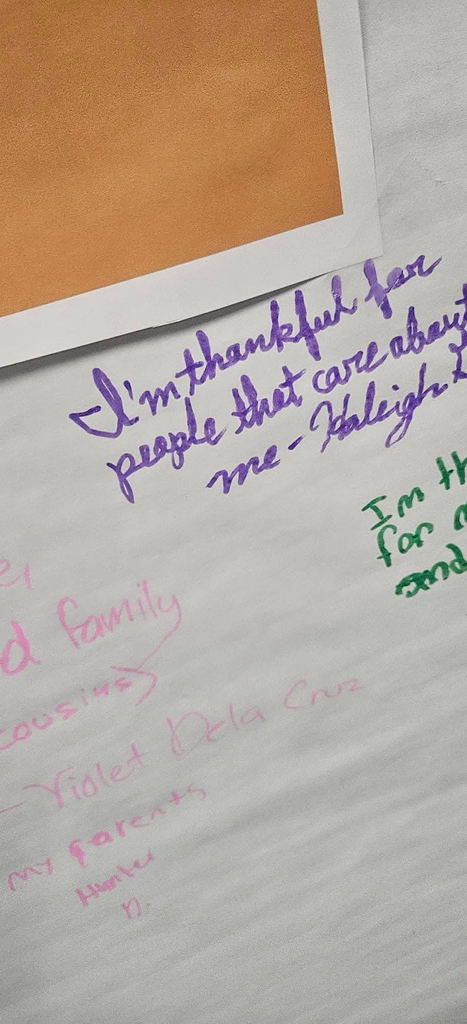 -I'm thankful for
people that care about
me - Haleigh
Im th
for m
and
e,
d family
cousins)
- Violet Dela Cruz
my parents
Hunter
D.